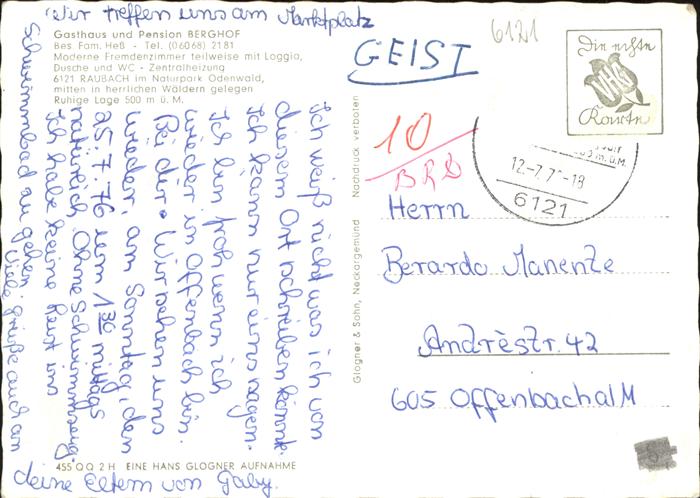 Gasthaus und Pension BERGHOF
Bes. Fam. Heß - Tel. (06068) 2181
Moderne Fremdenzimmer teilweise mit Loggia,
Dusche und WC - Zentralheizung
6121 RAUBACH im Naturpark Odenwald,
mitten in herrlichen Wäldern gelegen
Ruhige Lage 500 m ü. M.
Ich weiß nicht was ich von
diesem Ort schreiben könnte.
Ich kann nur eins sagen.
Ich bin froh wenn ich
wieder in Offenbach bin.
Bei dir. Wir sehen uns
wieder, am Sonntag, den
25.7.76 um 1 30 mittags
natürlich. Ohne Schwimmzeug.
Ich habe keine Lust ins
Schwimmbad zu gehen.
Wir treffen uns am Marktplatz
Viele grüße auch an
deine Eltern von Gaby.
455 QQ 2 H EINE HANS GLOGNER AUFNAHME
Glogner & Sohn, Neckargemünd
Nachdruck verboten
GEIST
6121
10
BRD
Die echte
VHG
Karte
ü. M.
12.-7.7 -18
6121
Herrn
Berardo Manenze
Andréstr. 42
605 Offenbach a/M